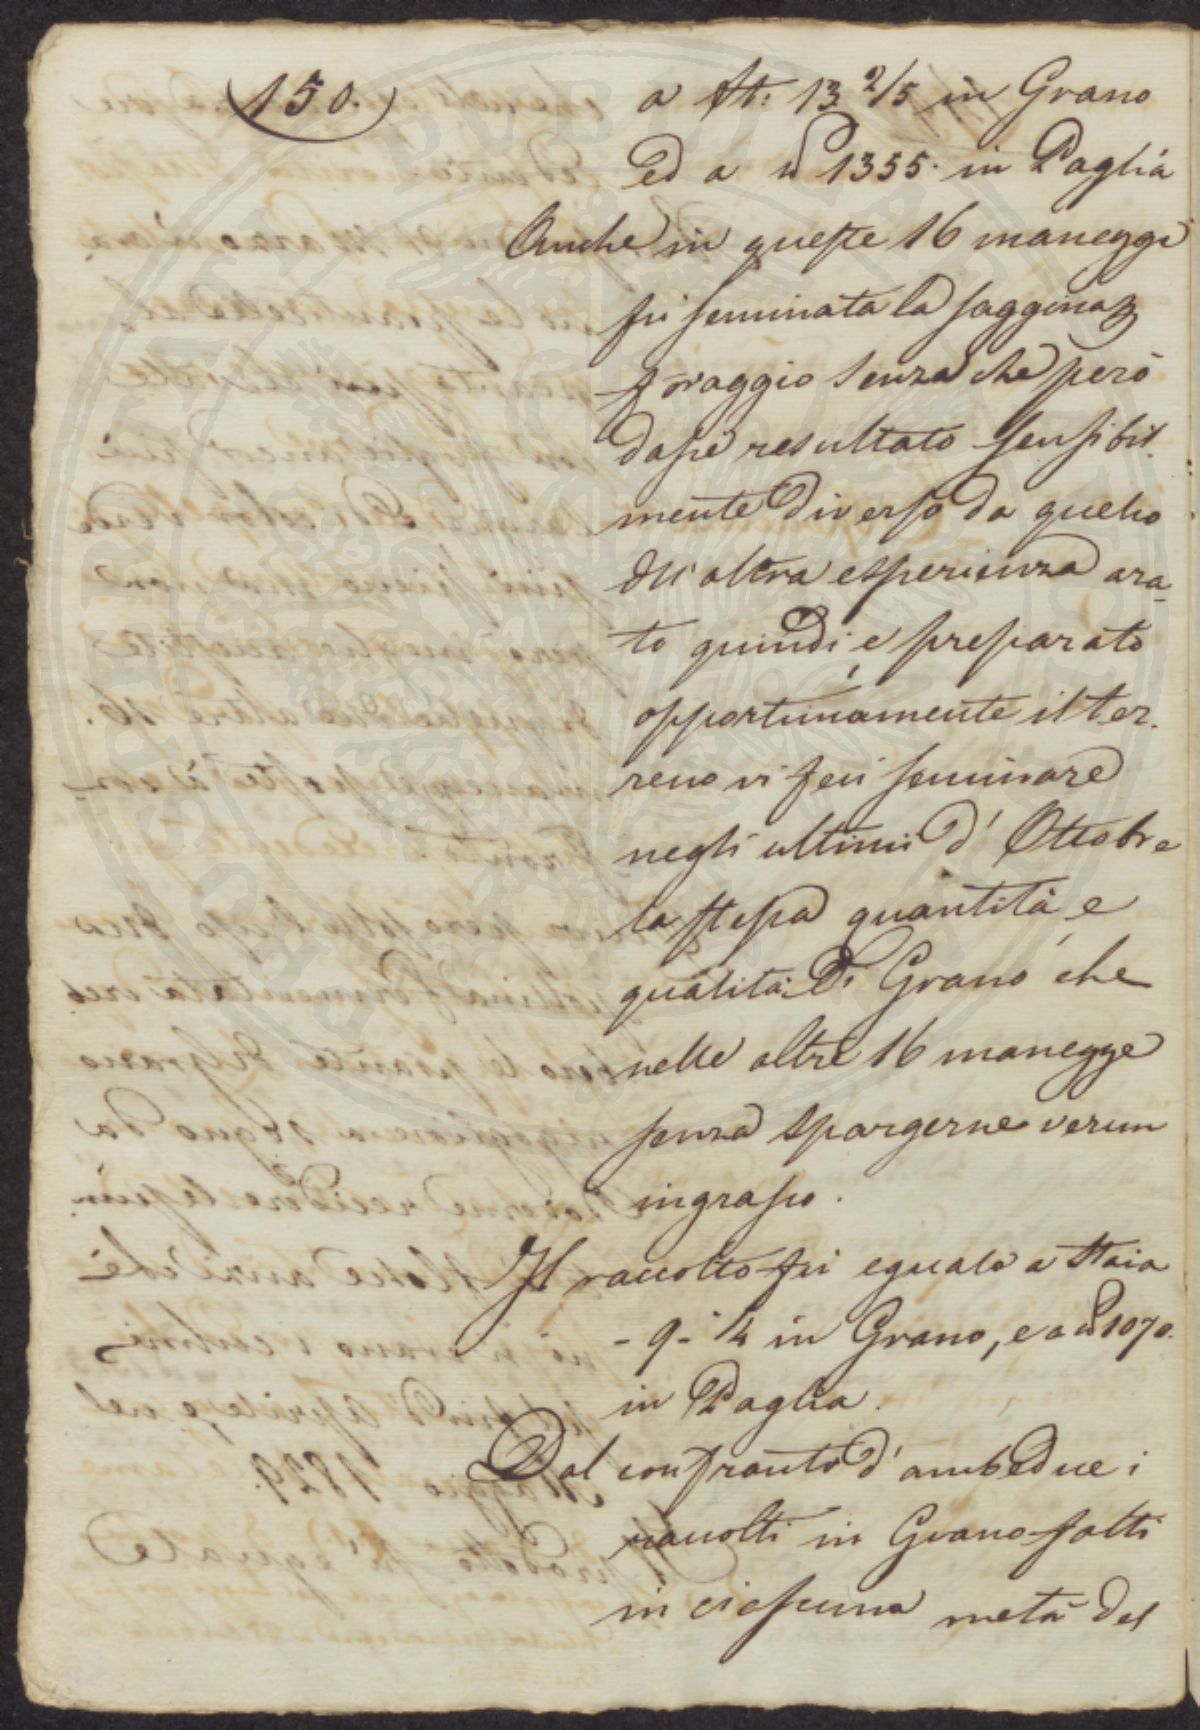 150.
a St: 13 2/5 in Grano
ed a ℔ 1355. in Paglia
Anche in queste 16 maneggi
fu seminata la saggina
foraggio senza che però
dasse resultato sensibil
mente diverso da quello
dell'altra esperienza ara-
to quindi e preparato
opportunamente il ter-
reno vi feci seminare
negli ultimi d' Ottobre
la stessa quantità, e
qualità di Grano che
nelle altre 16 manegge
senza spargerne verun
ingrasso.
Il raccolto fu eguale a staia
- 9 - 1/4 in Grano, e a ℔ 1070.
in Paglia.
Dal confronto d' ambedue i
raccolti in Grano fatti
in ciascuna metà del